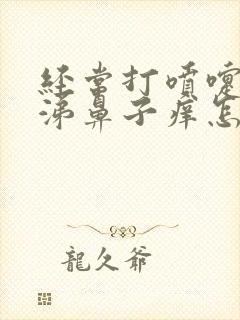 经常打喷嚏
涕鼻子痒怎
龍久爷